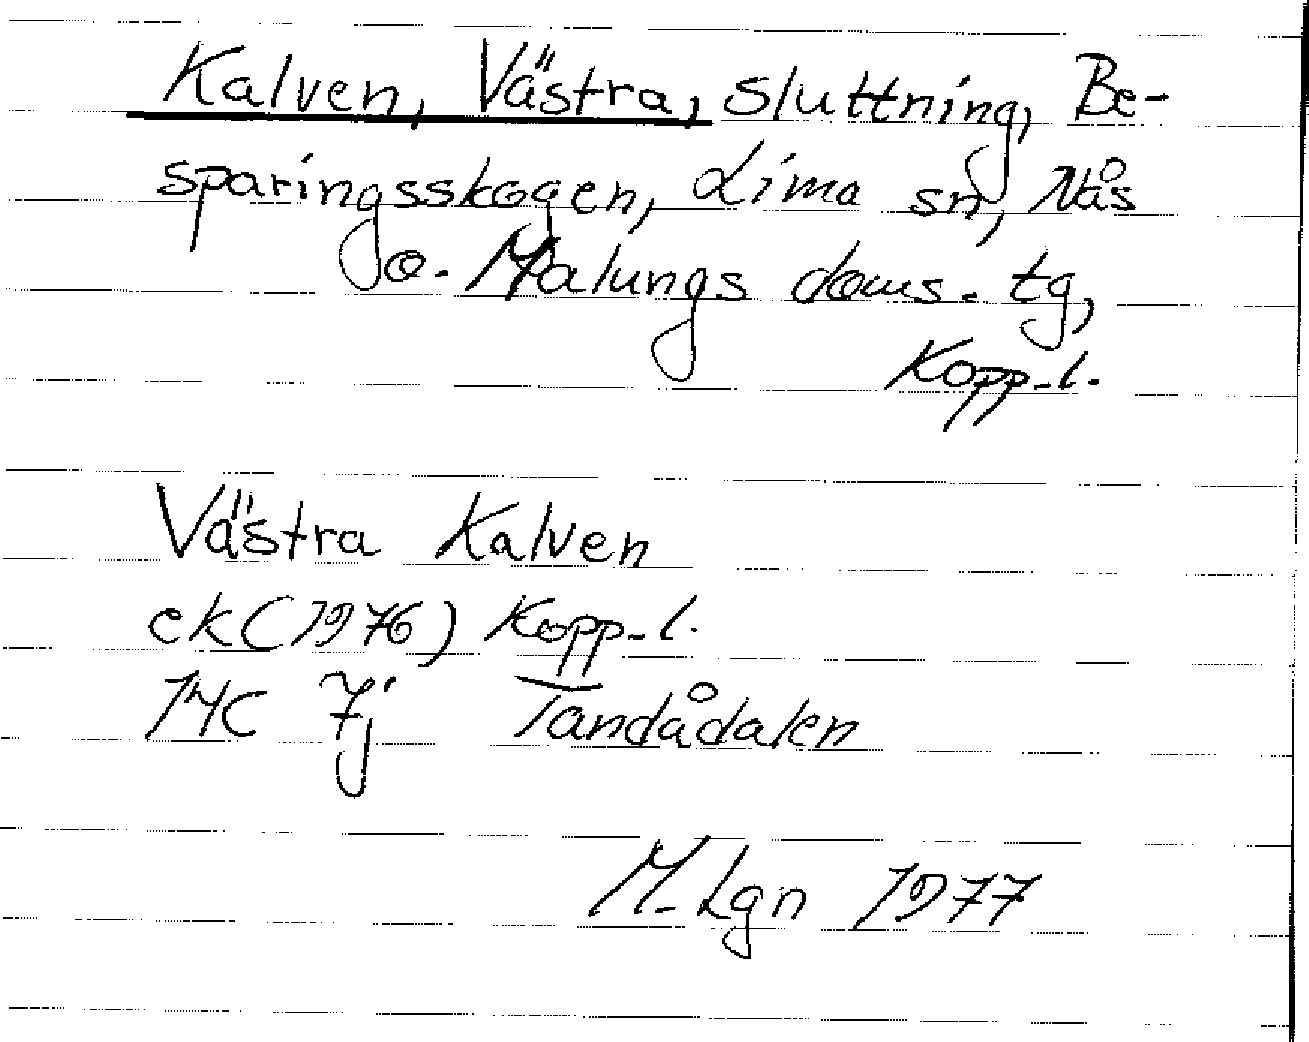 Kalven, Västra, sluttning, Be-
sparingsskogen, Lima sn, Nås
o. Malungs doms. tg,
Kopp. l.
Västra Kalven
ek (1976) Kopp. l.
14C 7j Tandådalen
M. Lgn 1977